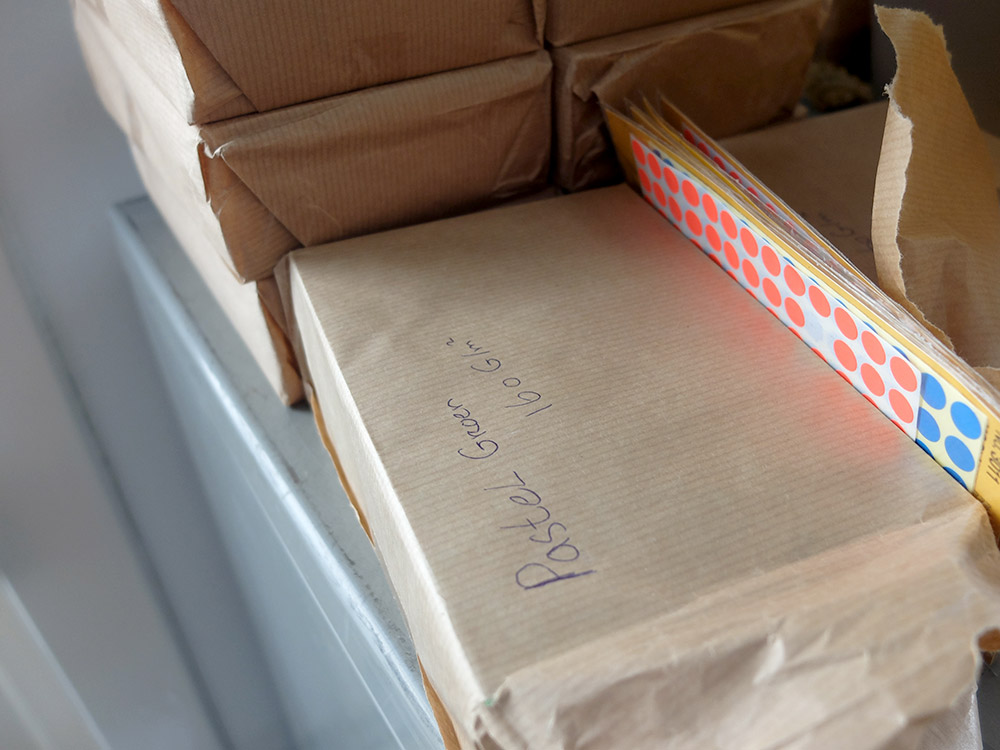 Pastel Groen
160 G/m²